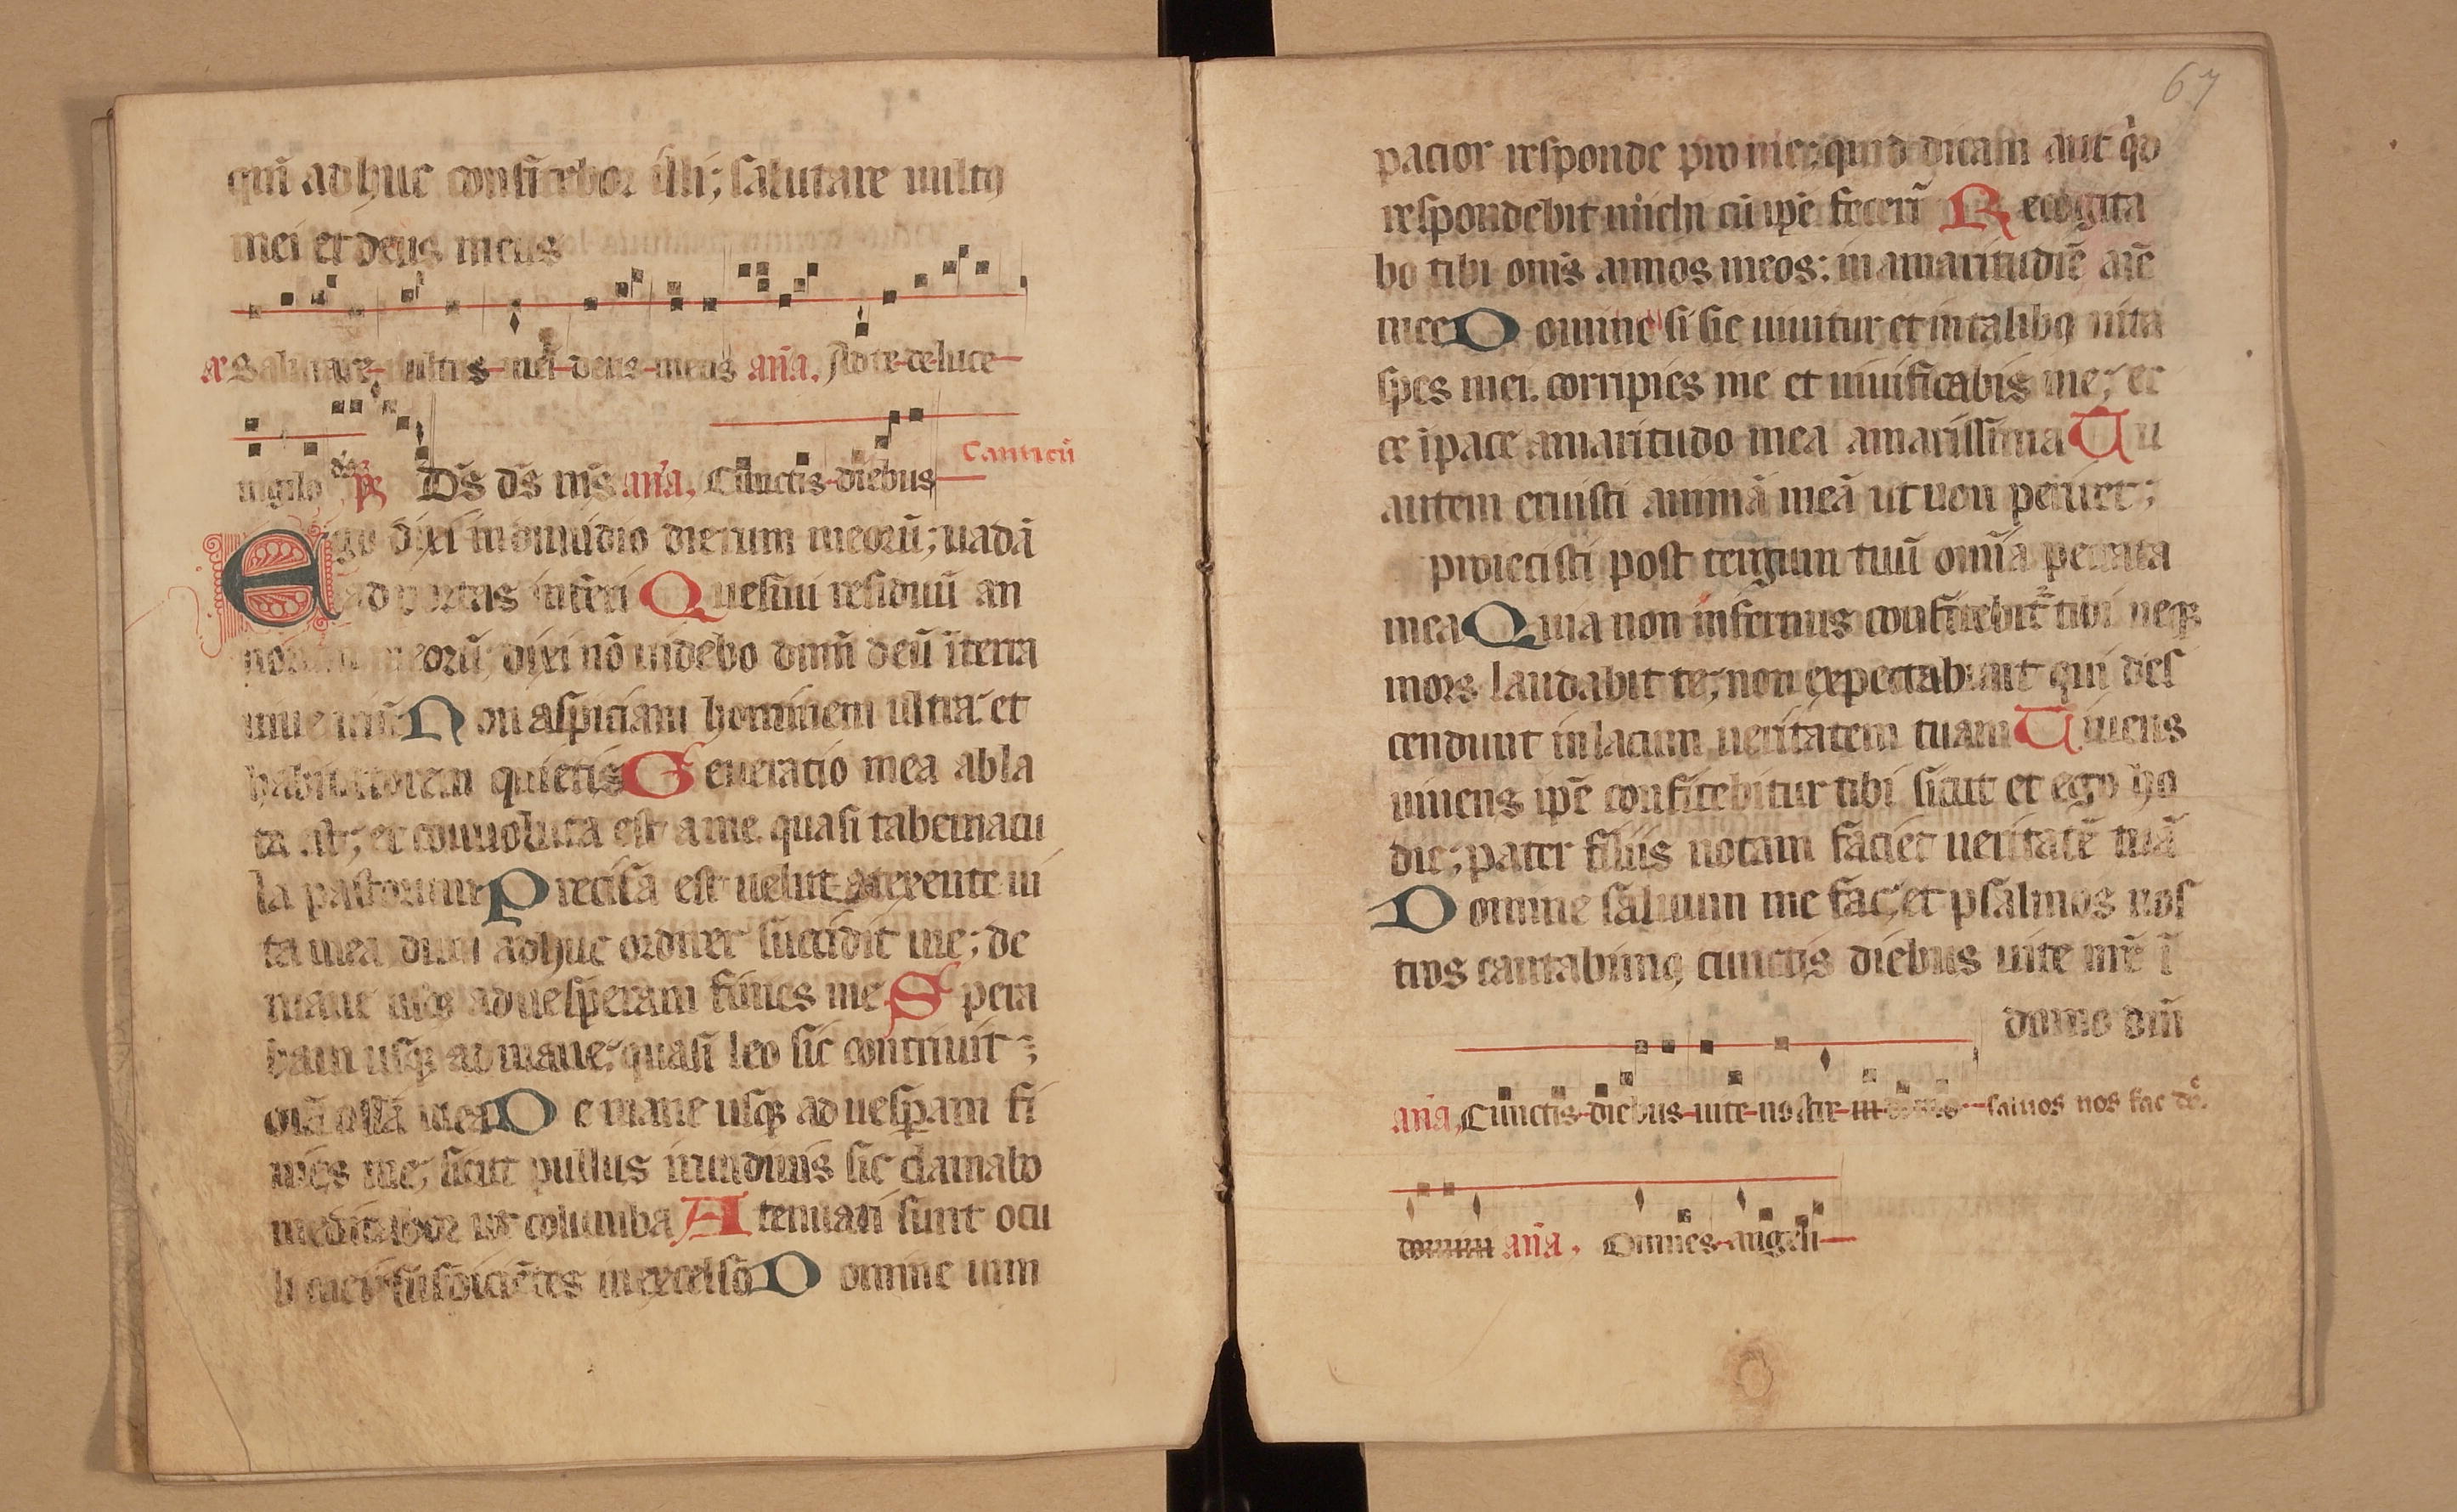 qm̄ adhuc confitebor illi; salutare uultꝯ
mei et deus meus
Salutare uultus mei deus meus an̄a. Ad te de luce
uigilo ds̄ ps̄ Ds̄ ds̄ ms̄ an̄a. Cunctis diebus Canticū
Ego dixi in dimidio dierum meorū; uadā
ad portas inferi Quesiui residuū an
norum meorū; dixi nō uidebo dnm̄ deū ī terra
Non aspiciam hominem ultra et
habitatorem quietis Generatio mea abla
ta est; et conuoluta est a me quasi tabernacu
la pastorum Precisa est uelut a texente ui
ta mea dum adhuc ordirer succidit me; de
mane usqꝫ ad uesperam finies me Spera
bam usqꝫ ad mane; quasi leo sic contriuit
oīa ossa mea De mane usqꝫ ad uesꝑam fi
nies me; sicut pullus irundinis sic clamabo
meditabor ut columba Atenuati sunt ocu
li mei suspiciētes in excelsō Domine uim
67
pacior responde pro me; quid dicam aut qͥd
respondebit michi cū ip̄e fecerī Recogita
bo tibi om̄s annos meos: in amaritudīe aīe
mee Domine si sic uiuitur et in talibꝯ uita
sp̄s mei. corripies me et uiuificabis me; ec
ce ī pace amaritudo mea amarissima Tu
autem eruisti animā meā ut non periret;
proiecisti post tergum tuū omīa peccata
mea Quia non infernus confitebit̄ tibi neqꝫ
mors laudabit te; non expectabunt qui des
cendunt in lacum ueritatem tuam Viuens
uiuens ip̄e confitebitur tibi sicut et ego ho
die; pater filiis notam faciet ueritatē tuā
Domine saluum me fac; et psalmos nos
tros cantabimꝯ cunctis diebus uite nr̄e ī
domo dn̄i
an̄a. Cunctis diebus uite nostre saluos nos fac dn̄e.
an̄a. Omnes angeli